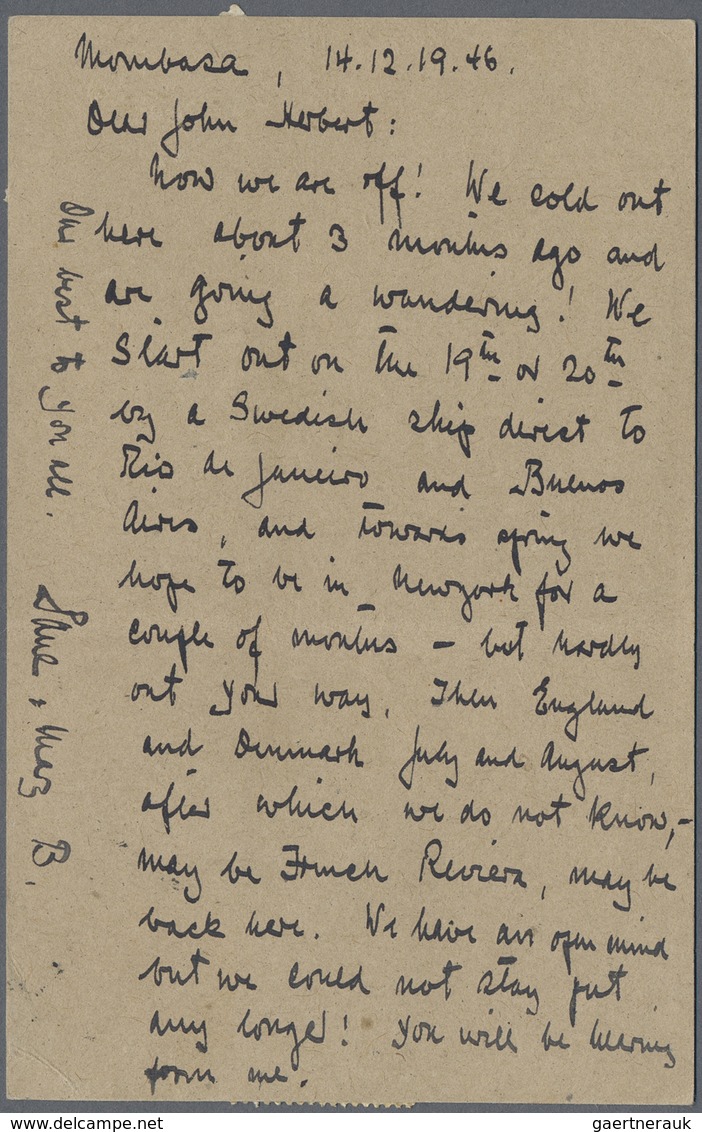 Mombasa, 14.12.19.46.
Dear John Herbert:
Now we are off! We sold out
here about 3 months ago and
are going a wandering! We
start out on the 19th or 20th
by a Swedish ship direct to
Rio de Janeiro and Buenos
Aires, and towards spring we
hope to be in Newyork for a
couple of months – but hardly
out your way. Then England
and Denmark July and August,
after which we do not know,–
may be French Riviera, may be
back here. We have an open mind
but we could not stay put
any longer! You will be hearing
form me.
Our best to you all.
& Mary B.
gaertnerauk